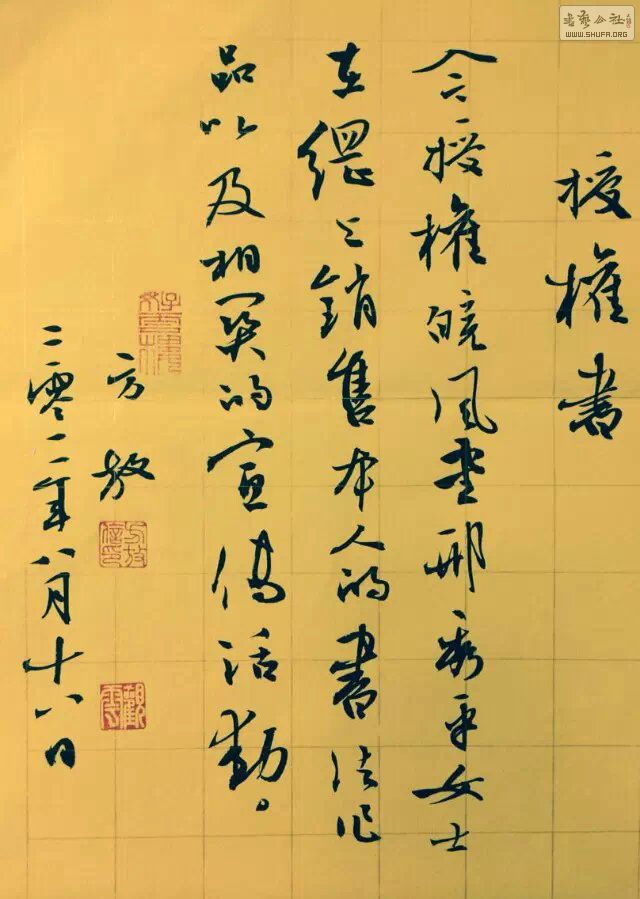 授權書
今授權皖風堂邢秀平女士
在網上銷售本人的書法作
品以及相関的宣傳活動。
方放
二零一一年八月十八日
書藝公社
WWW.SHUFA.ORG